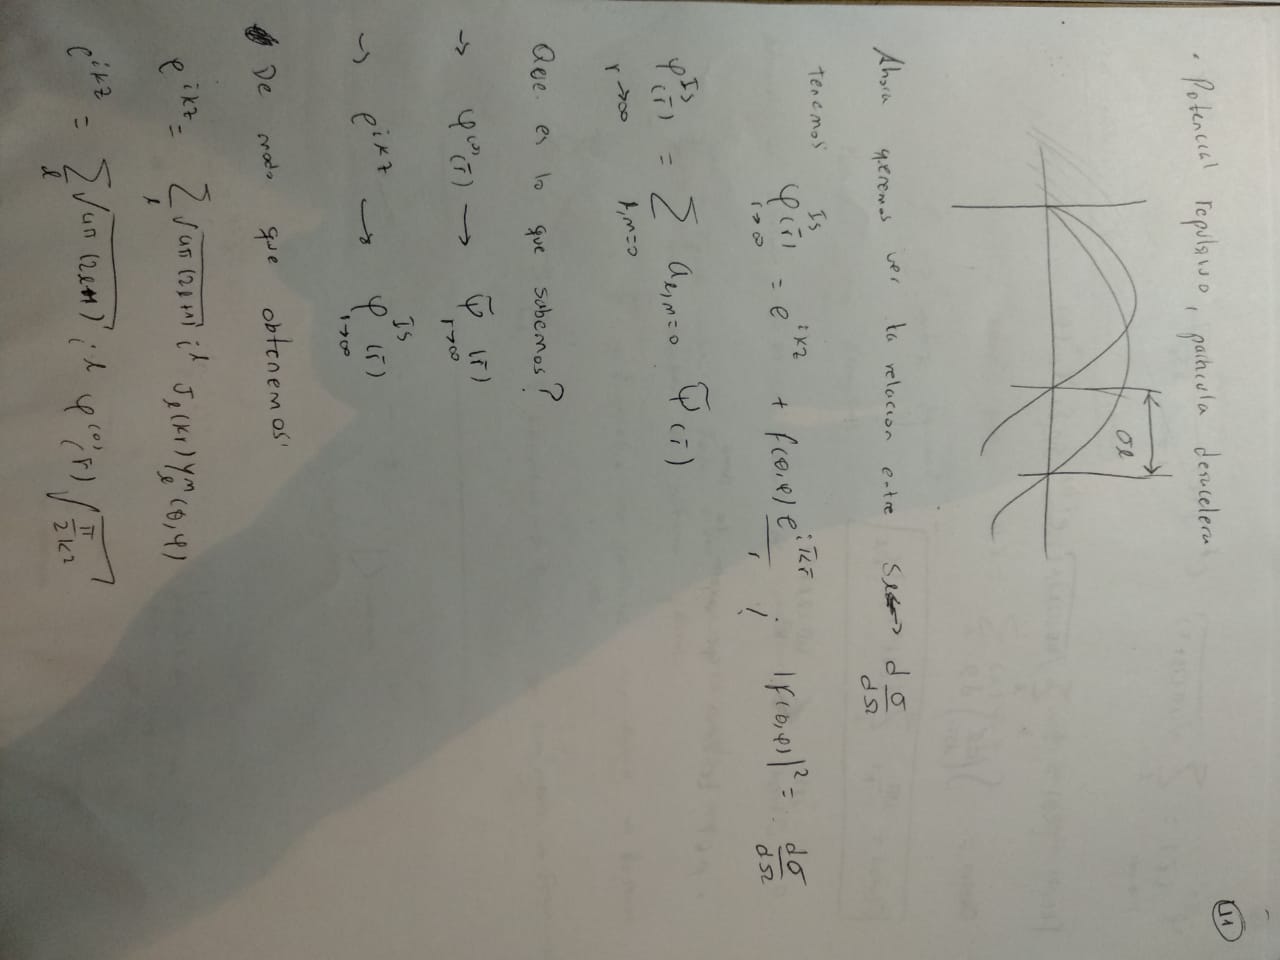 41
· Potencial repulsivo, partícula desacelera
σl
Ahora queremos ver la relacion entre Sl ↔ dσ/dΩ
tenemos φ^Is(r̄) r→∞ = e^ikz + f(θ,φ) e^ik̄r̄/r ; |f(θ,φ)|² = dσ/dΩ
φ^Is(r̄) r→∞ = Σ l,m=0 a l,m=0 φ̃(r̄)
Que es lo que sabemos?
→ φ^(0)(r̄) → φ̃(r̄) r→∞
→ e^ikz → φ^Is(r̄) r→∞
De modo que obtenemos
e^ikz = Σ l √4π(2l+1) i^l J l(kr) Y l^m(θ,φ)
e^ikz = Σ l √4π(2l+1) i^l φ^(0)(r̄) √π/2k²